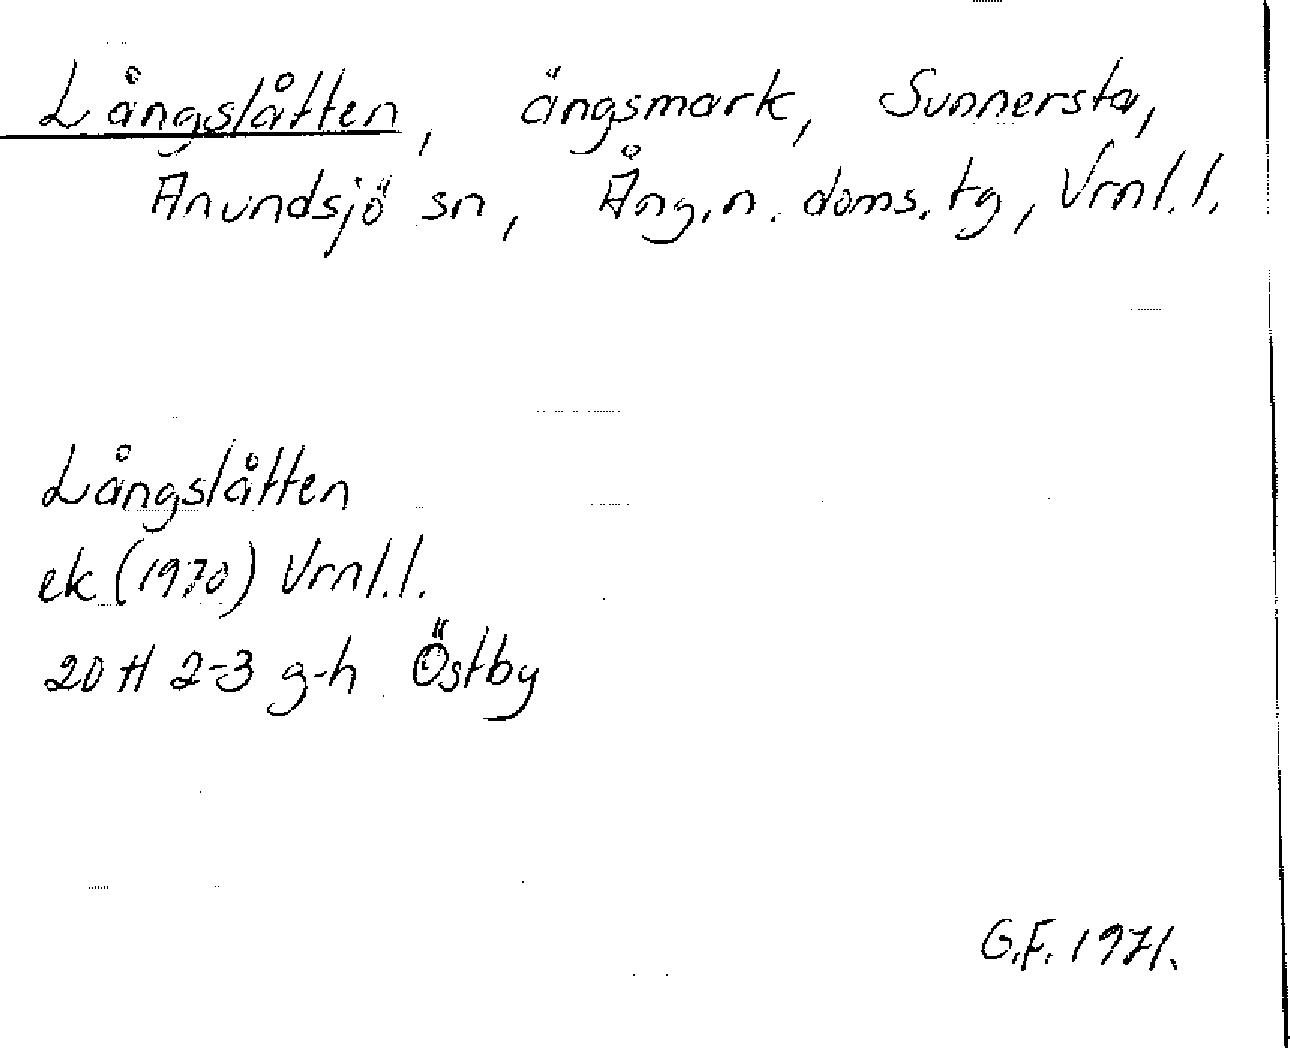 Långslåtten, ängsmark, Sunnersta,
Anundsjö sn, Ång.n. doms.tg, Vrnl.l.
Långslåtten
ek (1970) Vrnl.l.
20 H 2-3 g-h Östby
G.F. 1971.